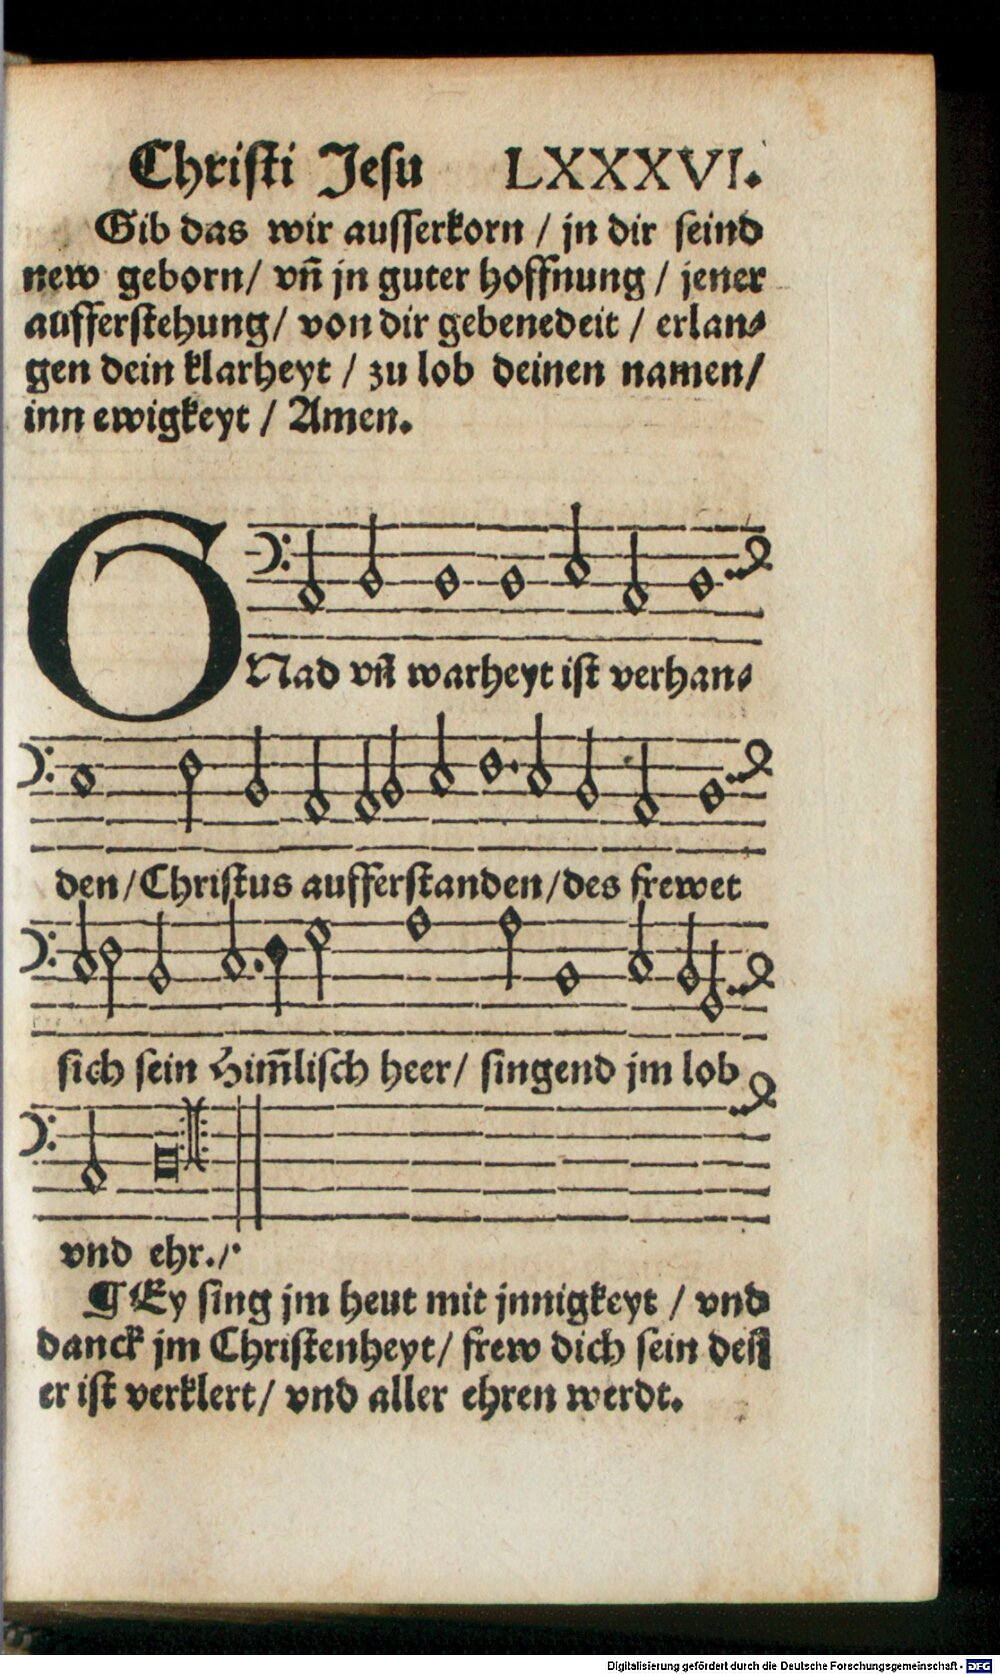 Christi Jesu LXXXVI.
Gib das wir ausserkorn / jn dir seind
new geborn / vñ jn guter hoffnung / jener
aufferstehung / von dir gebenedeit / erlan⸗
gen dein klarheyt / zu lob deinen namen /
inn ewigkeyt / Amen.
GNad vñ warheyt ist verhan⸗
den / Christus aufferstanden / des frewet
sich sein Him̃lisch heer / singend jm lob
vnd ehr.
¶ Ey sing jm heut mit jnnigkeyt / vnd
danck jm Christenheyt / frew dich sein deñ
er ist verklert / vnd aller ehren werdt.
Digitalisierung gefördert durch die Deutsche Forschungsgemeinschaft - DFG